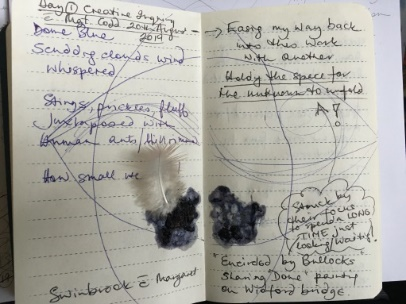 Day 1 Creative Inquiry
c̄ Margt Codd 20th August
2014
Dome Blue
Scudding clouds wind
whispered
Stings, prickles, fluff
Juxtaposed with
Human ants
How small we
Swinbrook c̄ Margaret
→ Easing my way back
into this work
with another
Holding the space for
the unknown to unfold
Struck by
their focus
to spend a LONG
TIME just
looking/waiting!
"Encircled by Bullocks
Sharing Dome" passing
on Widford bridge